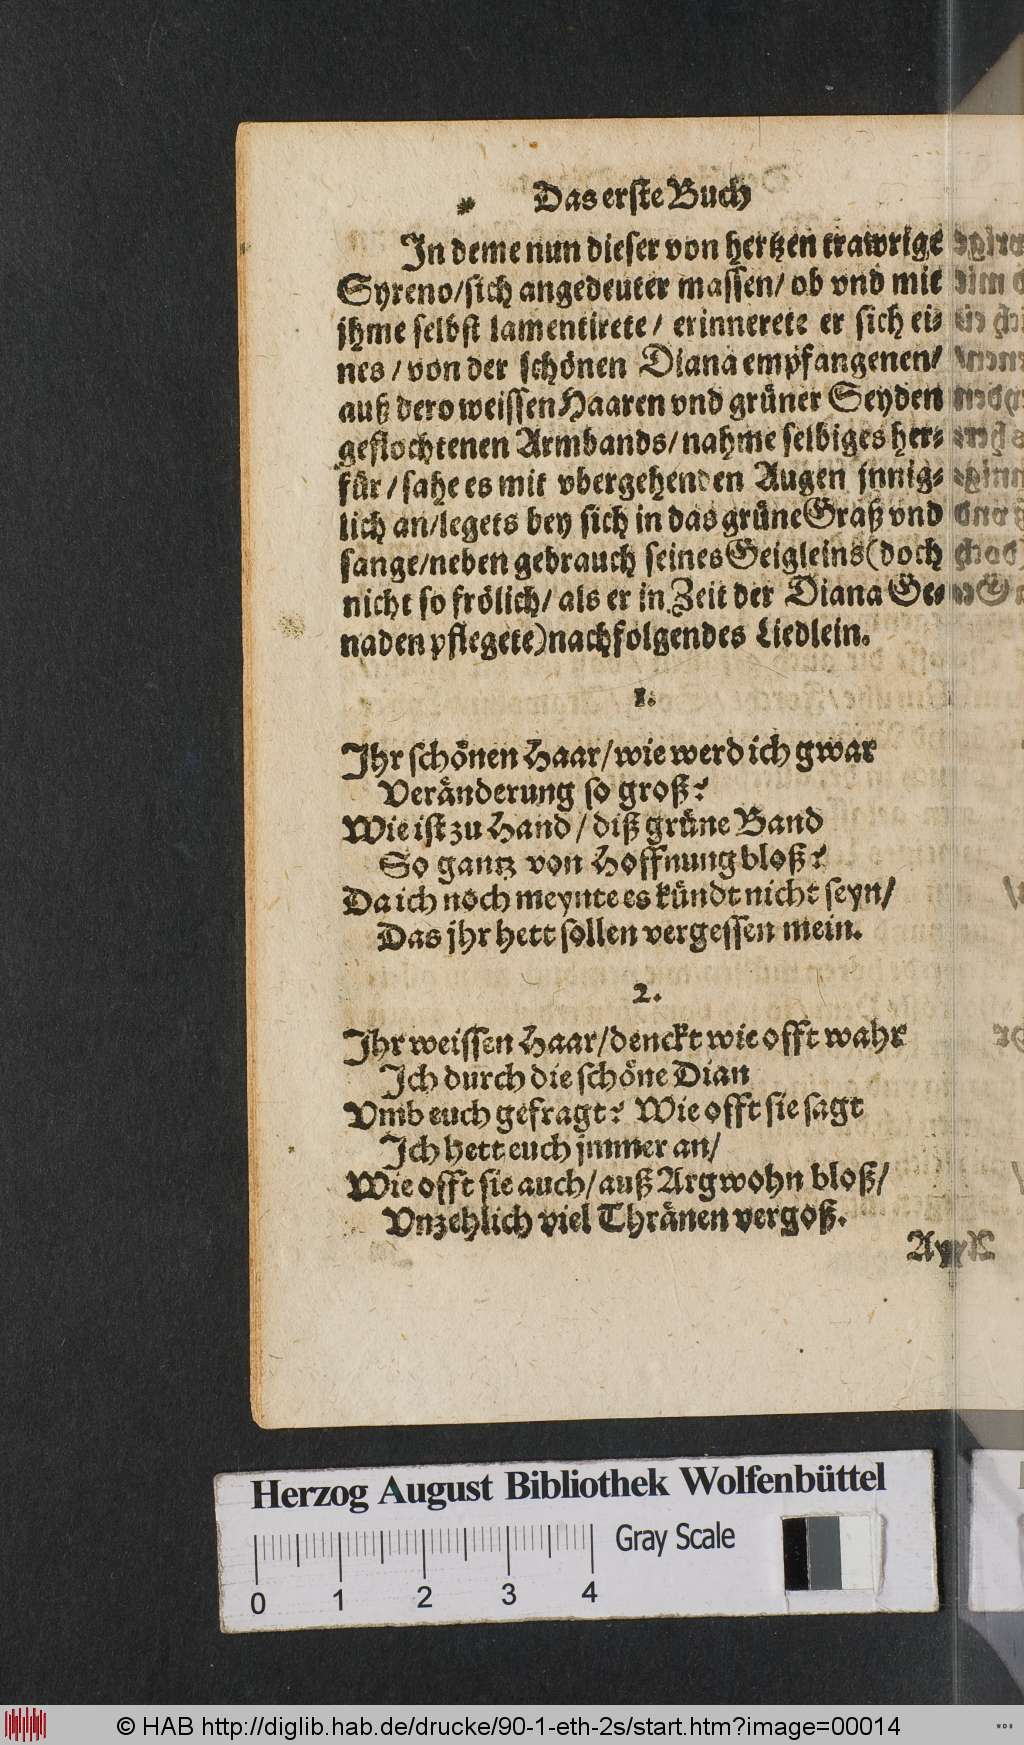 Das erste Buch
In deme nun dieser von hertzen trawrige
Syreno/sich angedeuter massen/ ob vnd mit
jhme selbst lamentirete/ erinnerete er sich ei⸗
nes/von der schönen Diana empfangenen/
auß dero weissen Haaren vnd grüner Seyden
geflochtenen Armbands/nahme selbiges her⸗
für/sahe es mit vbergehenden Augen jnnig⸗
lich an/legets bey sich in das grüne Graß vnd
sange/neben gebrauch seines Geigleins(doch
nicht so frölich/ als er in Zeit der Diana Ge⸗
naden pflegete)nachfolgendes Liedlein.
1.
Ihr schönen Haar/wie werd ich gwar
Veränderung so groß?
Wie ist zu Hand/diß grüne Band
So gantz von Hoffnung bloß?
Da ich noch meynte es kündt nicht seyn/
Das jhr hett sollen vergessen mein.
2.
Ihr weissen Haar/denckt wie offt wahr
Ich durch die schöne Dian
Vmb euch gefragt? Wie offt sie sagt
Ich hett euch jmmer an/
Wie offt sie auch/auß Argwohn bloß/
Vnzehlich viel Thränen vergoß.
Herzog August Bibliothek Wolfenbüttel
Gray Scale
0 1 2 3 4
© HAB http://diglib.hab.de/drucke/90-1-eth-2s/start.htm?image=00014